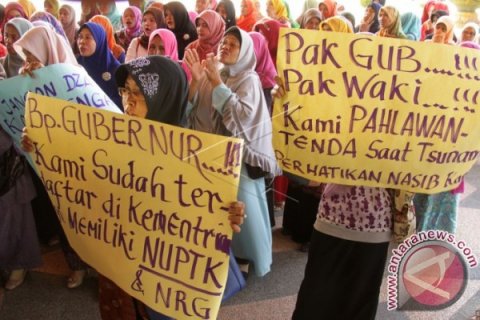 Bp. GUBERNUR....!!!
Kami Sudah ter
daftar di Kementrian
MEMILIKI NUPTK
& NRG
Pak GUB....!!!
Pak Waki...!!!
Kami PAHLAWAN-
TENDA Saat Tsunami
PERHATIKAN NASIB Kami
antaranews.com